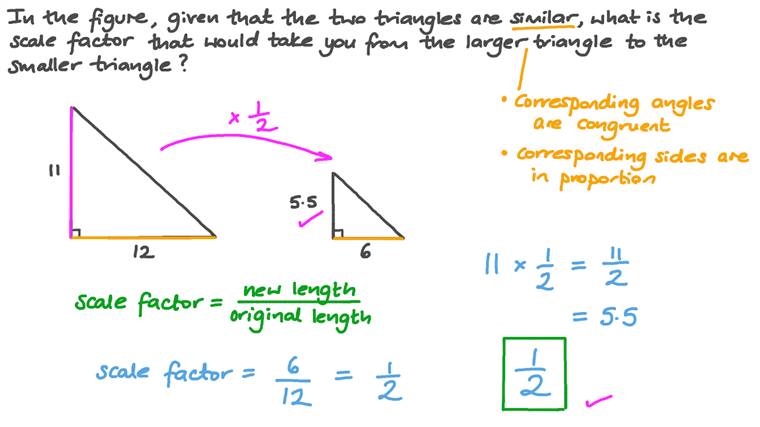 In the figure, given that the two triangles are similar, what is the
scale factor that would take you from the larger triangle to the
smaller triangle?
• Corresponding angles
are congruent
• Corresponding sides are
in proportion
× 1/2
11
12
5.5
6
scale factor = new length / original length
scale factor = 6/12 = 1/2
11 × 1/2 = 11/2
= 5.5
1/2